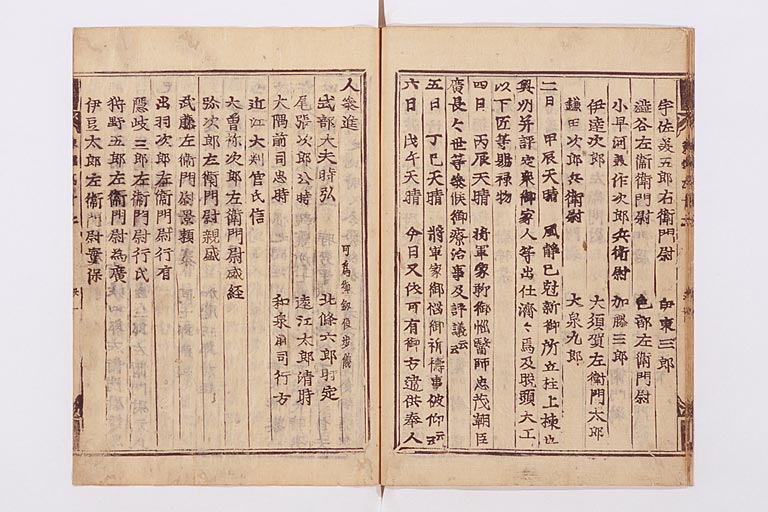 宇佐美五郎右衛門尉　伊東三郎
澁谷左衛門尉　色部左衛門尉
小早河美作次郎兵衛尉　加藤三郎
伊達次郎左衛門尉　大須賀左衛門太郎
鎌田次郎兵衛尉　大泉九郎
二日　甲辰天晴　風静巳尅新御所立柱上棟也
奥州并評定衆御家人等出仕濟々為及脱頭大工
以下匠等賜禄物
四日　丙辰天晴　將軍家聊御惱醫師忠茂朝臣
廣長々世等參候御療治事及評議云云
五日　丁巳天晴　將軍家御惱御祈禱事被仰云云
六日　戊午天晴　今日又依可有御方違供奉人
人衆進　可為御釼役歩儀
式部大夫時弘　北條六郎時定
尾張次郎公時　遠江太郎清時
大隅前司忠時　和泉前司行方
近江大判官氏信
大曾祢次郎左衛門尉盛経
弥次郎左衛門尉親盛
武藤左衛門尉景頼
出羽次郎左衛門尉行有
隱岐三郎左衛門尉行氏
狩野五郎左衛門尉為廣
伊豆太郎左衛門尉實保